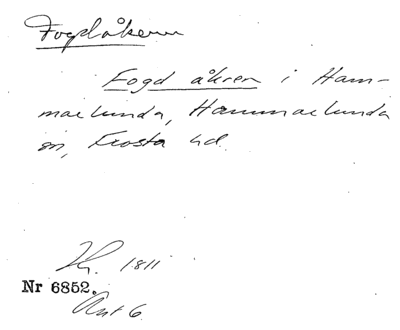 Fogdåkern
Fogd åkren i Ham-
marlunda, Hammarlunda
sn, Frosta hd.
1811
Nr 6852.
Akt 6